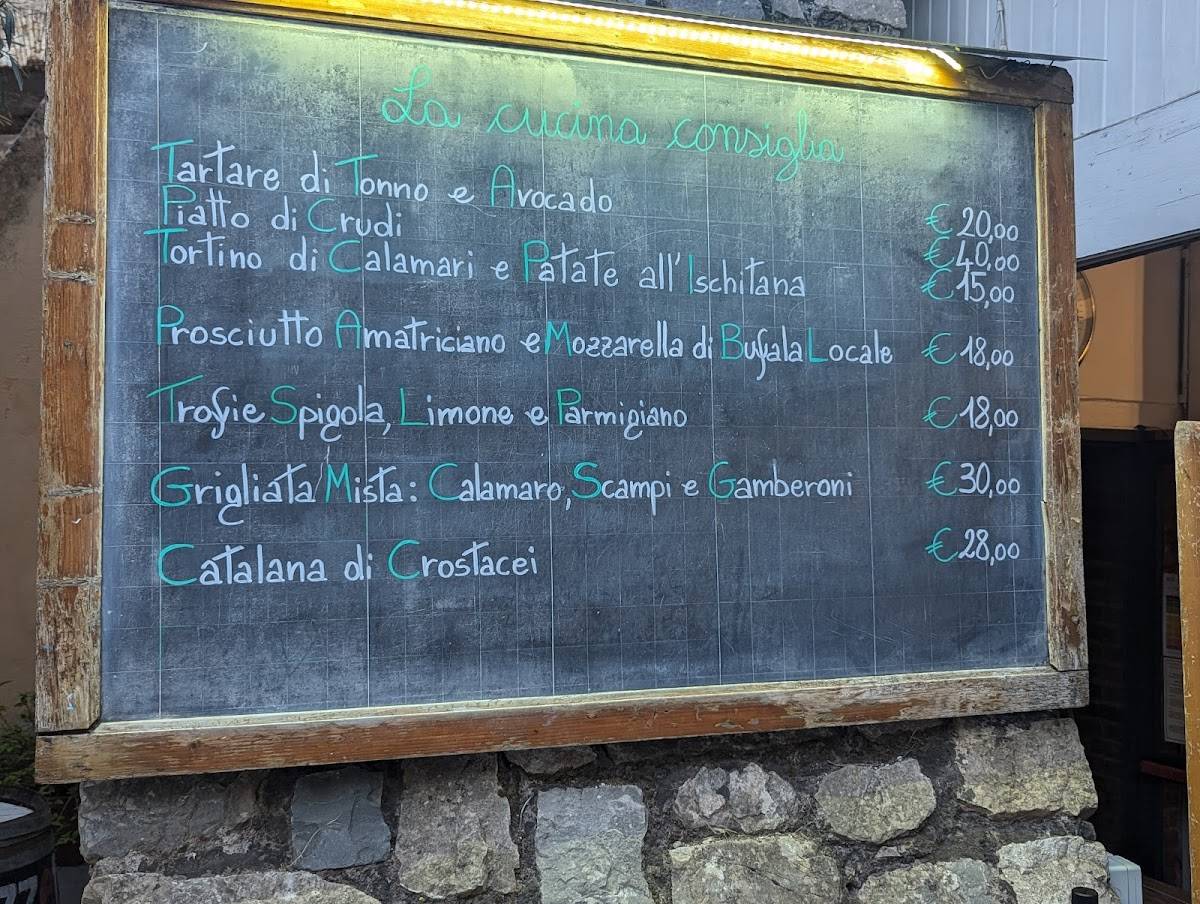 La cucina consiglia
Tartare di Tonno e Avocado € 20,00
Piatto di Crudi € 40,00
Tortino di Calamari e Patate all'Ischitana € 15,00
Prosciutto Amatriciano e Mozzarella di Bufala Locale € 18,00
Trofie Spigola, Limone e Parmigiano € 18,00
Grigliata Mista: Calamaro, Scampi e Gamberoni € 30,00
Catalana di Crostacei € 28,00